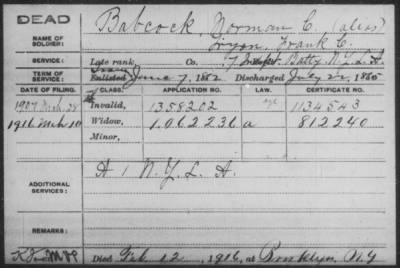 DEAD
NAME OF SOLDIER: Babcock, Norman C. (alias)
Tryon, Frank C.
SERVICE: Late rank, Co. 7 Batty N.Y.L.A.
TERM OF SERVICE: Enlisted June 7, 1862 Discharged July 22, 1865
DATE OF FILING. CLASS. APPLICATION NO. LAW. CERTIFICATE NO.
1907 Mch. 28 Invalid, 1358202 age 1134543
1916 Mch 10 Widow, 1062236 a 812240
Minor,
ADDITIONAL SERVICES: A 1 N.Y.L.A.
REMARKS:
Died Feb. 12, 1916, at Brooklyn, N.Y